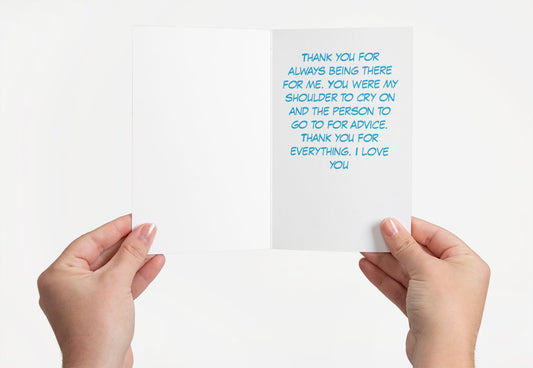 THANK YOU FOR
ALWAYS BEING THERE
FOR ME. YOU WERE MY
SHOULDER TO CRY ON
AND THE PERSON TO
GO TO FOR ADVICE.
THANK YOU FOR
EVERYTHING. I LOVE
YOU